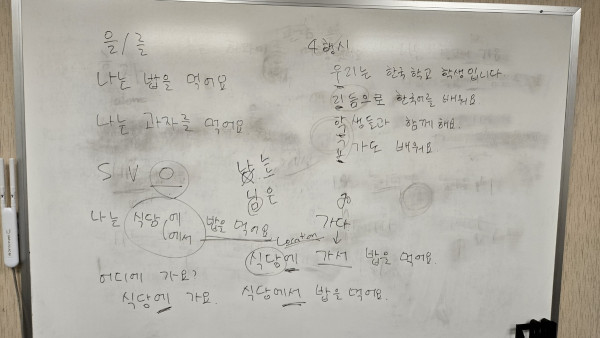 을/를
나는 밥을 먹어요
나는 과자를 먹어요
S V O
나는 식당에 밥을 먹어요
에서
어디에 가요?
식당에 가요.
4행시
우리는 한국학교 학생입니다
리듬으로 한국어를 배워요
학생들과 함께해요.
교가도 배워요
남는
님은
go
가다
Location
식당에 가서 밥을 먹어요.
식당에서 밥을 먹어요.